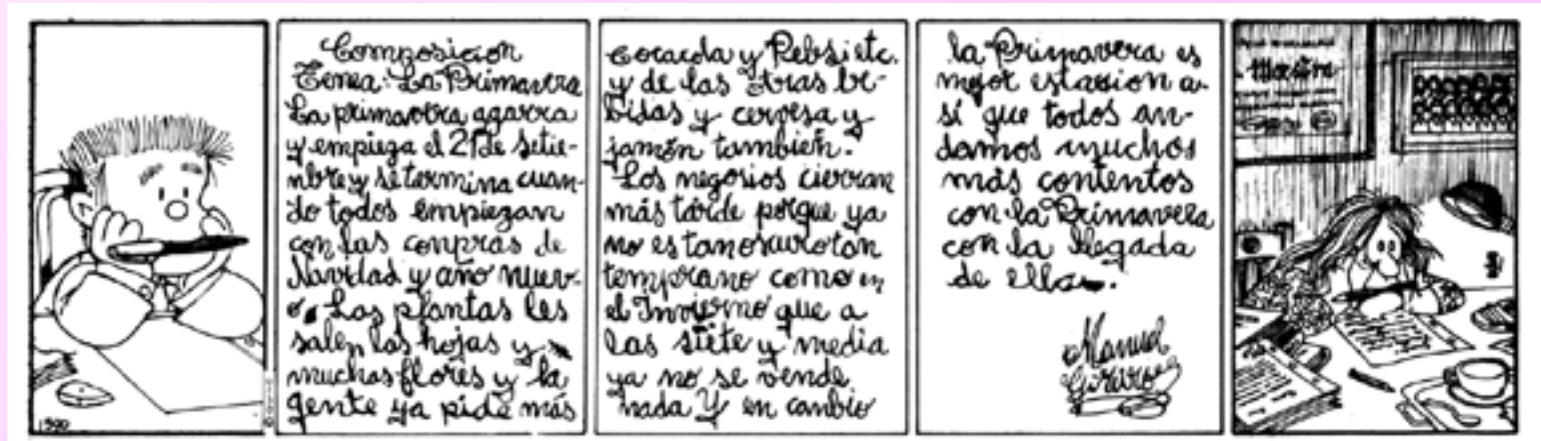 Composicion
Tema: La Primavera
La primavera agarra
y empieza el 21 de setie-
mbre y se termina cuan-
do todos empiezan
con las conpras de
Navidad y año nuev-
o. Las plantas les
salen las hojas y
muchas flores y la
gente ya pide más
cocacola y Pebsi etc.
y de las otras be-
bidas y cervesa y
jamón tambien.
Los negosios cierran
más tarde porque ya
no es tanoscurotan
temprano como en
el Invierno que a
las siete y media
ya no se vende
nada Y en canbio
la Primavera es
mejor estasion a-
sí que todos an-
damos muchos
más contentos
con la Primavera
con la llegada
de ella.
Manuel
Maestra